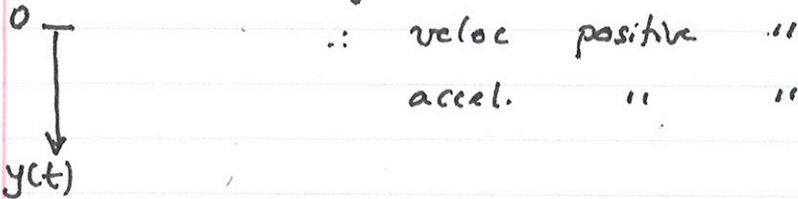 0
∴ veloc positive "
accel. " "
y(t)